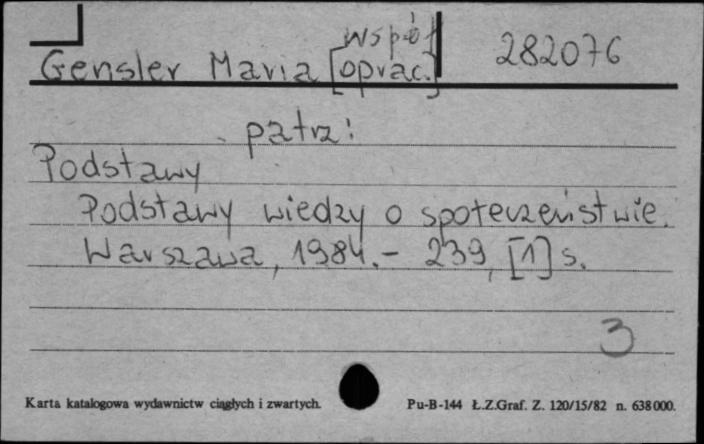 współ
Gensler Maria [oprac.] 282076
patrz:
Podstawy
Podstawy wiedzy o społeczeństwie.
Warszawa, 1984.- 239, [1] s.
3
Karta katalogowa wydawnictw ciągłych i zwartych. Pu-B-144 Ł.Z.Graf. Z. 120/15/82 n. 638000.